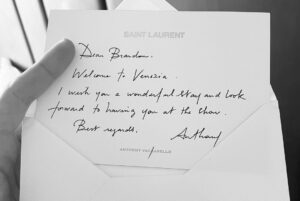 SAINT LAURENT
Dear Brandon.
Welcome to Venezia.
I wish you a wonderful stay and look
forward to having you at the show.
Best regards.
Anthony
ANTHONY VACCARELLO